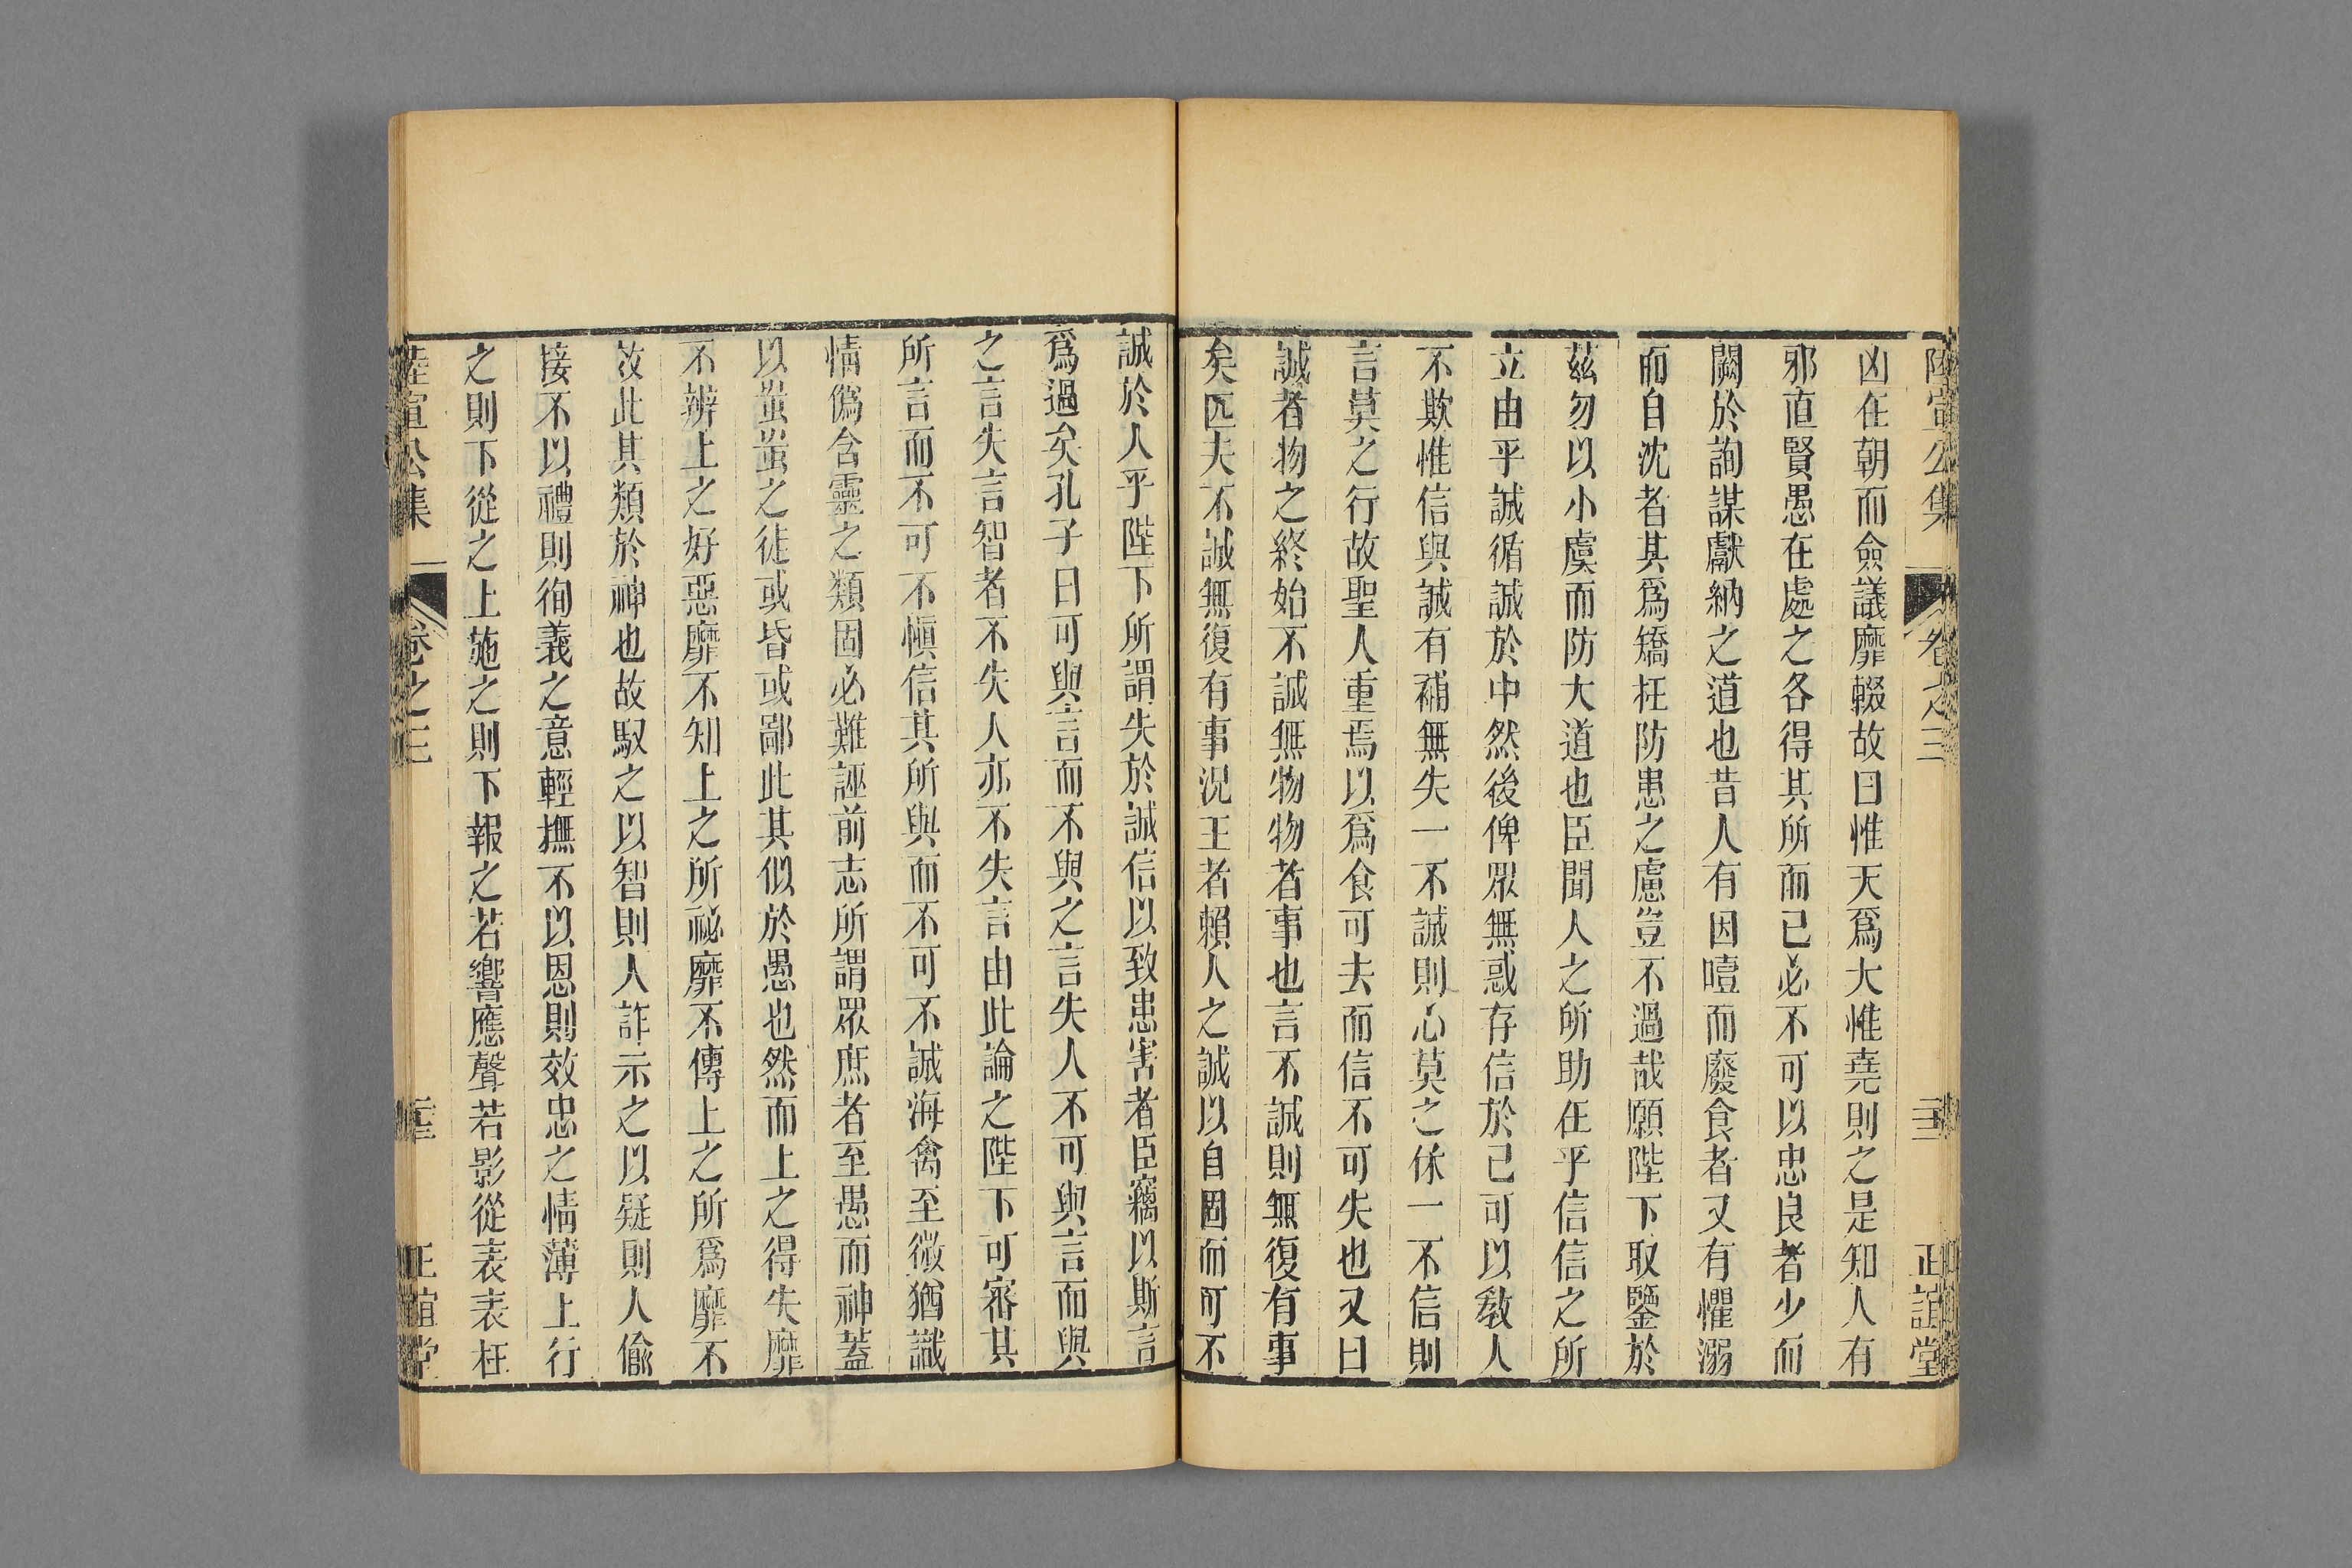 陸宣公集 卷之三 正誼堂
凶在朝而僉議靡輟故曰惟天爲大惟堯則之是知人有
邪直賢愚在處之各得其所而已必不可以忠良者少而
闕於詢謀獻納之道也昔人有因噎而廢食者又有懼溺
而自沈者其爲矯枉防患之慮豈不過哉願陛下取鑒於
茲勿以小虞而防大道也臣聞人之所助在乎信信之所
立由乎誠循誠於中然後俾眾無惑存信於己可以敎人
不欺惟信與誠有補無失一不誠則心莫之保一不信則
言莫之行故聖人重焉以爲食可去而信不可失也又曰
誠者物之終始不誠無物物者事也言不誠則無復有事
矣匹夫不誠無復有事況王者賴人之誠以自固而可不
誠於人乎陛下所謂失於誠信以致患害者臣竊以斯言
爲過矣孔子曰可與言而不與之言失人不可與言而與
之言失言智者不失人亦不失言由此論之陛下可審其
所言而不可不愼信其所與而不可不誠海禽至微猶識
情僞含靈之類固必難誣前志所謂眾庶者至愚而神蓋
以蚩蚩之徒或昏或鄙此其似於愚也然而上之得失靡
不辨上之好惡靡不知上之所祕靡不傳上之所爲靡不
效此其類於神也故馭之以智則人詐示之以疑則人偷
接不以禮則徇義之意輕撫不以恩則效忠之情薄上行
之則下從之上施之則下報之若響應聲若影從表表枉
陸宣公集 卷之三 正誼堂